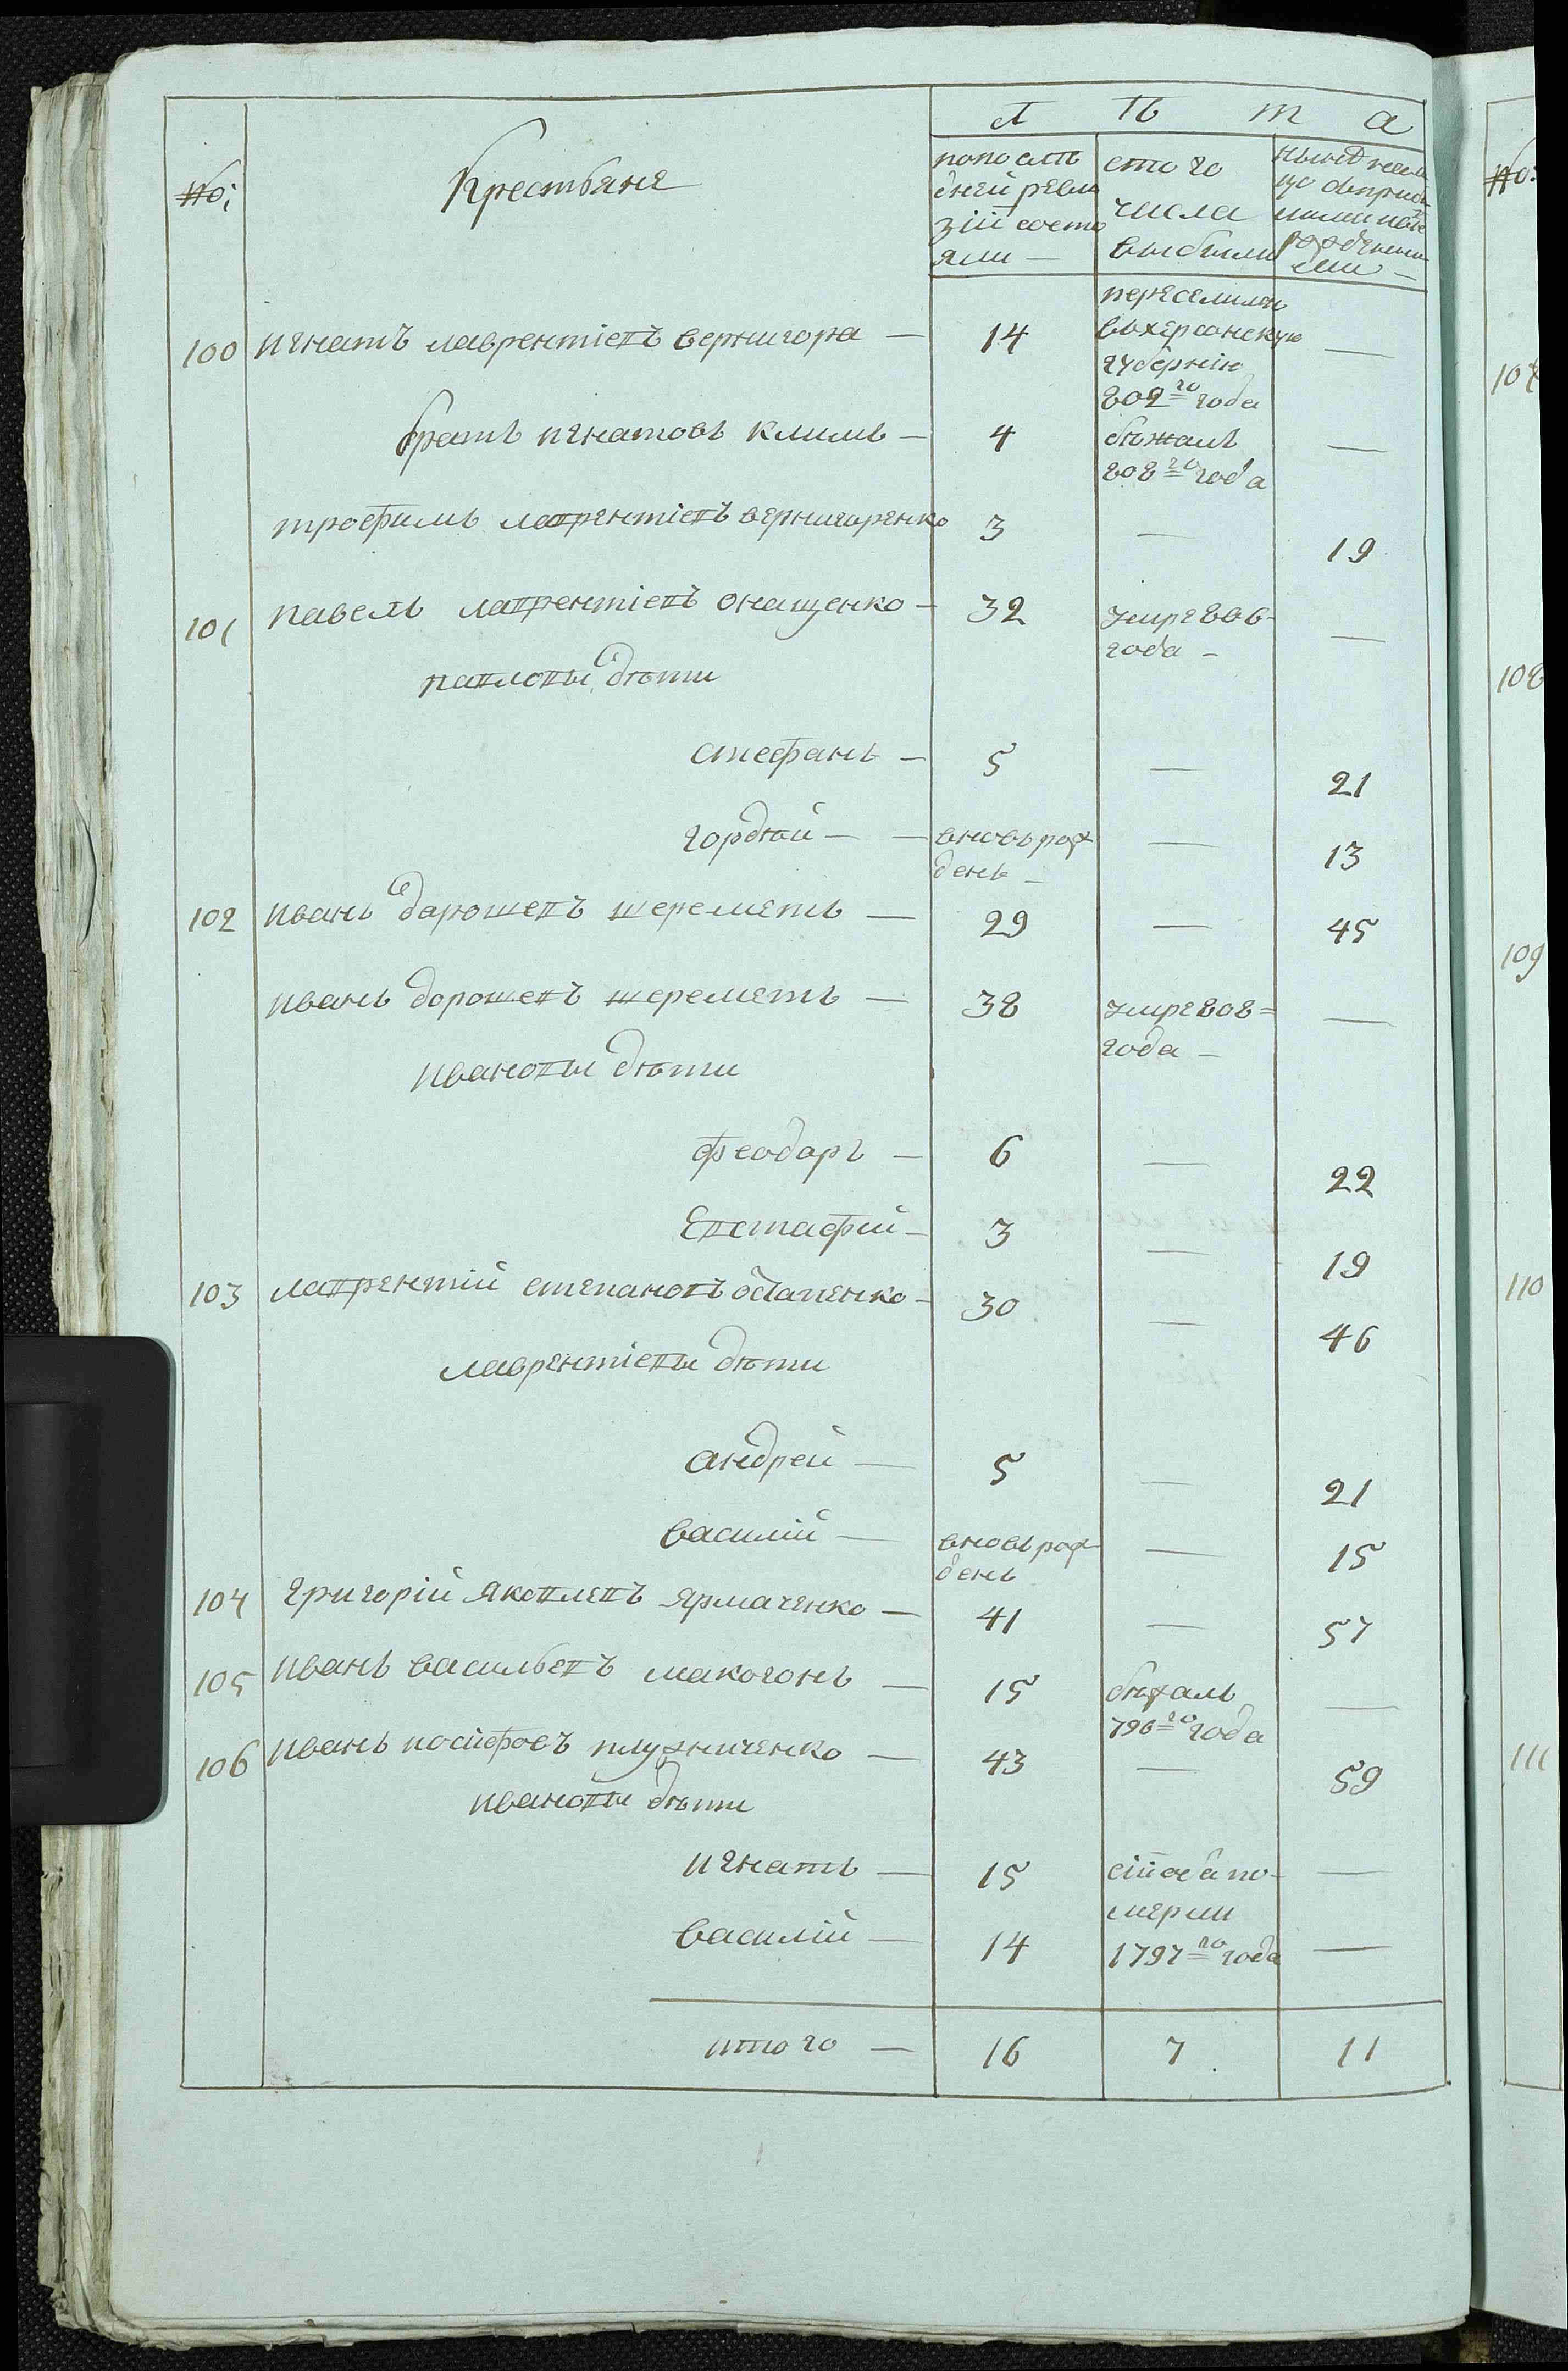 Л Ѣ т а
№: Крестьяне
попослѣ
дней реви
зіи состо
яли —
стого
числа
выбыли
100 игнатъ лаврентіевъ вернигора — 14 переселилси вхерсонскую губернію 802го года —
братъ игнатовъ климъ — 4 бѣжалъ 808го года —
трофимъ лаврентіевъ вернигоренко 3 — 19
101 павелъ лаврентіевъ онащенко — 32 умре 806 года — —
павловы дѣти
стефанъ — 5 — 21
гордѣй — — вновьрож денъ — — 13
102 иванъ дарошевъ шереметъ — 29 — 45
иванъ дорошевъ шереметъ — 38 умре 808 = года — —
ивановы дѣти
феодаръ — 6 — 22
Евстафий — 3 — 19
103 лаврентій степановъ остапенко — 30 — 46
лаврентіевы дѣти
андрей — 5 — 21
василій — вновьрож денъ — 15
104 григорій яковлевъ ярмаченко — 41 — 57
105 иванъ васильевъ макогонъ — 15 бѣжалъ 796го года —
106 иванъ иосифовъ плужниченко — 43 — 59
ивановы дѣти
игнатъ — 15 сіи оба по- —
мерли
василій — 14 1797го года —
итого — 16 7 11
№:
107
108
109
110
111